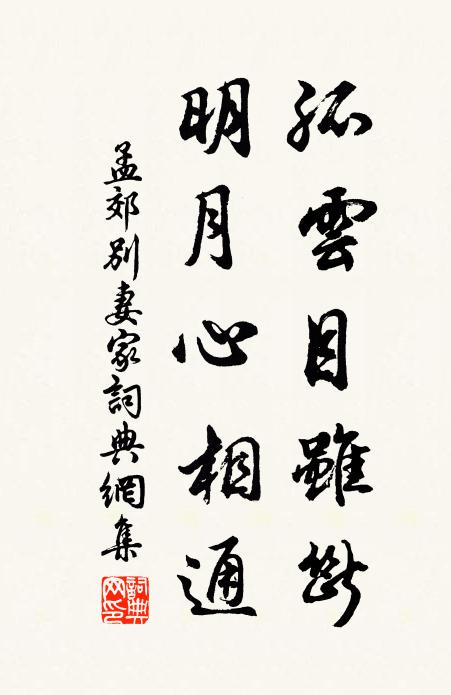 孤雲目雖斷
明月心相通
孟郊别妻家詞典網集
詞典网印